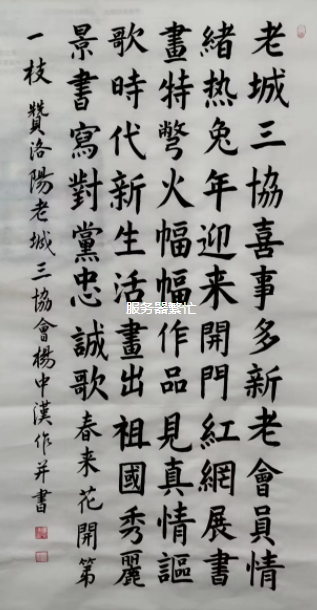 老城三協喜事多新老會員情
緒热兔年迎来開門紅網展書
畫特彆火幅幅作品見真情謳
歌時代新生活畫出祖國秀麗
景書寫對黨忠誠歌春来花開第
一枝贊洛陽老城三協會楊中漢作并書
服务器繁忙